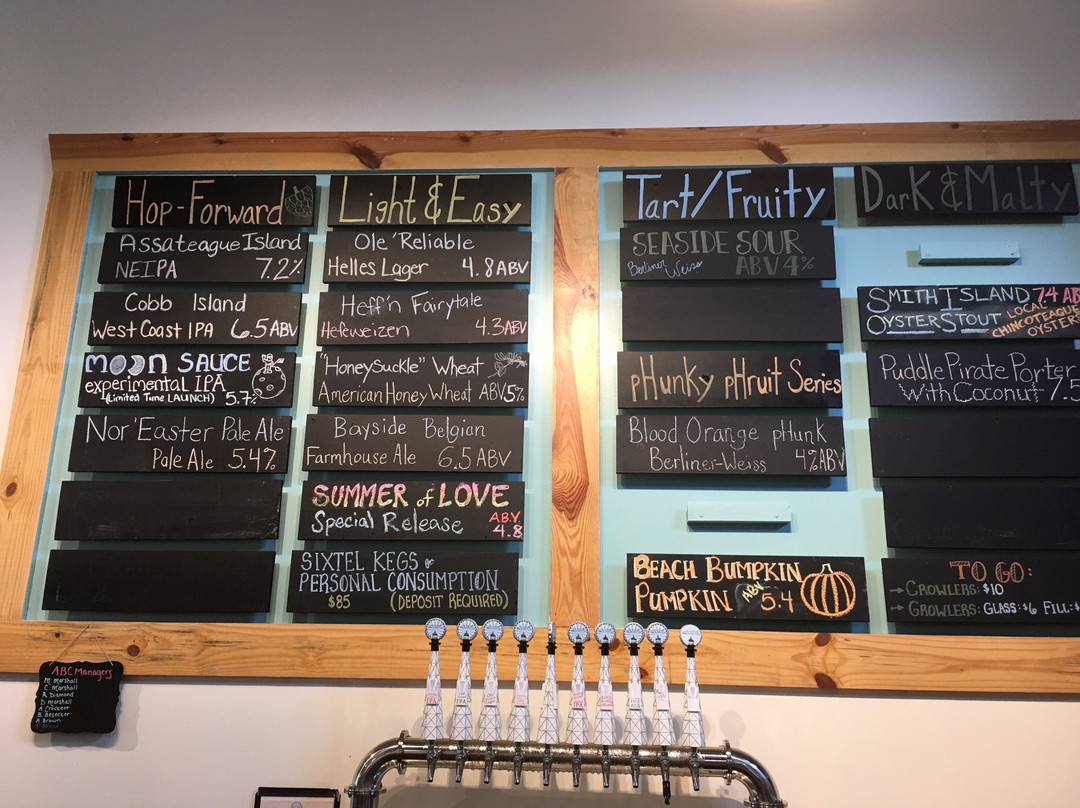 Hop-Forward
Assateague Island
NEIPA 7.2%
Cobb Island
West Coast IPA 6.5 ABV
MOON SAUCE
experimental IPA
(Limited Time LAUNCH) 5.7%
Nor'Easter Pale Ale
Pale Ale 5.4%
Light & Easy
Ole 'Reliable
Helles Lager 4.8 ABV
Heff'n Fairytale
Hefeweizen 4.3 ABV
"HoneySuckle" Wheat
American Honey Wheat ABV 5%
Bayside Belgian
Farmhouse Ale 6.5 ABV
SUMMER of LOVE
Special Release A.B.V. 4.8
SIXTEL KEGS
PERSONAL CONSUMPTION
$85 (DEPOSIT REQUIRED)
Tart/Fruity
SEASIDE SOUR
Berliner Weiss ABV 4%
pHunky pHruit Series
Blood Orange pHunk
Berliner-Weiss 4% ABV
BEACH BUMPKIN
PUMPKIN ABV 5.4
Dark & Malty
SMITH ISLAND 7.4 AB
OYSTER STOUT LOCAL
CHINCOTEAGUE
OYSTERS
Puddle Pirate Porter
With Coconut 7.5
TO GO:
→ CROWLERS: $10
→ GROWLERS: GLASS: $6 FILL: $
ABC Managers
M. Marshall
C. Marshall
R. Diamond
D. Marshall
A. Crockett
B. Besecker
A. Brown
IPA
IPA